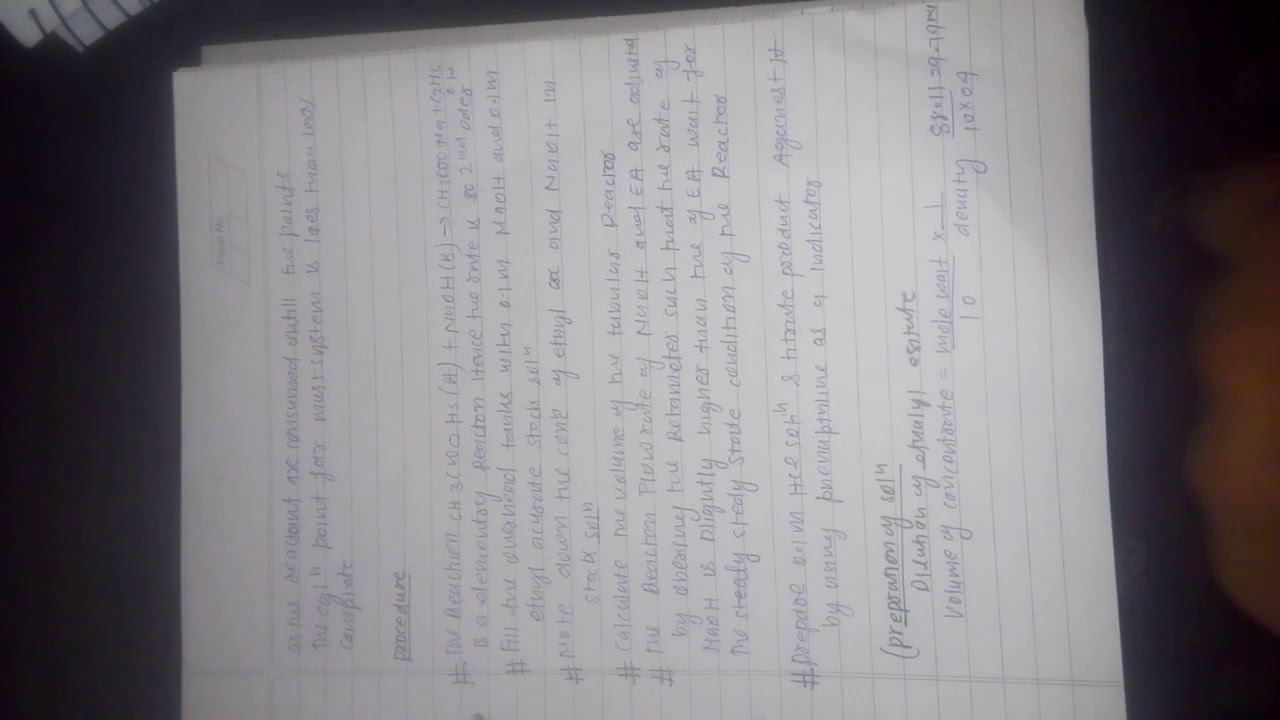 Page No.
as the reactant are consumed untill the points
The eqlⁿ point for must system is less than 100%
complete
procedure
# The Reaction CH3COOC2H5(A) + NaOH(B) → CH3COONa + C2H5OH
is a elementary Reaction Hence the rate is 2nd oder
# Fill the overhead tanks with 0.1M NaOH and 0.1M
ethyl acitrate stock solⁿ
# Note down the conc of ethyl and NaOH in
stock solⁿ
# Calculate the volume of the tubular Reactor
# The Reaction Flow rate of NaOH and EA are adjusted
by obsering the Rotameter such that the rate of
NaOH is slightly higher than the of EA wait for
the steady stedy state condition of the Reactor
# prepare 0.1M HCl solⁿ & titrate product Agienest it
by using phenupthline as a indicator
(prepration of solⁿ
Dilution of ethyl esitute
volume of concentrate = mole wait × 1
10 density
10×09